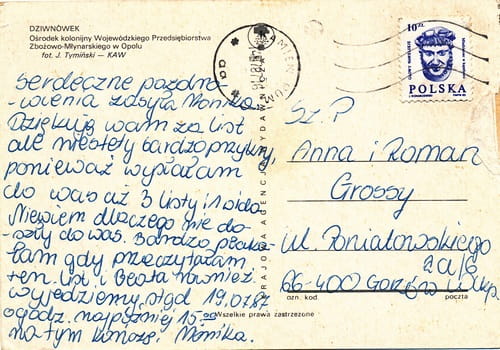 DZIWNÓWEK
Ośrodek kolonijny Wojewódzkiego Przedsiębiorstwa
Zbożowo-Młynarskiego w Opolu
fot. J. Tymiński — KAW
Serdeczne pozdro-
wienia zasyła Monika.
Dziękuję wam za list
ale niestety bardzo przykry,
ponieważ wysłałam
do was aż 3 listy i 1 wido.
Niewiem dlaczego nie do-
szły do was. Bardzo płaka-
łam gdy przeczytałam
ten list i Beata również.
Wyjedziemy stąd 19.07.87
o godz. najpóźniej 15.00
na tym kończę Monika.
KRAJOWA AGENCJA WYDAWNICZA
KAMIEŃ POM
10 ZŁ
POLSKA
Sz. P
Anna i Roman
Grossy
ul. Poniatowskiego
2a/6
66-400 Gorzów Wlkp.
ozn. kod.
poczta
Wszelkie prawa zastrzeżone